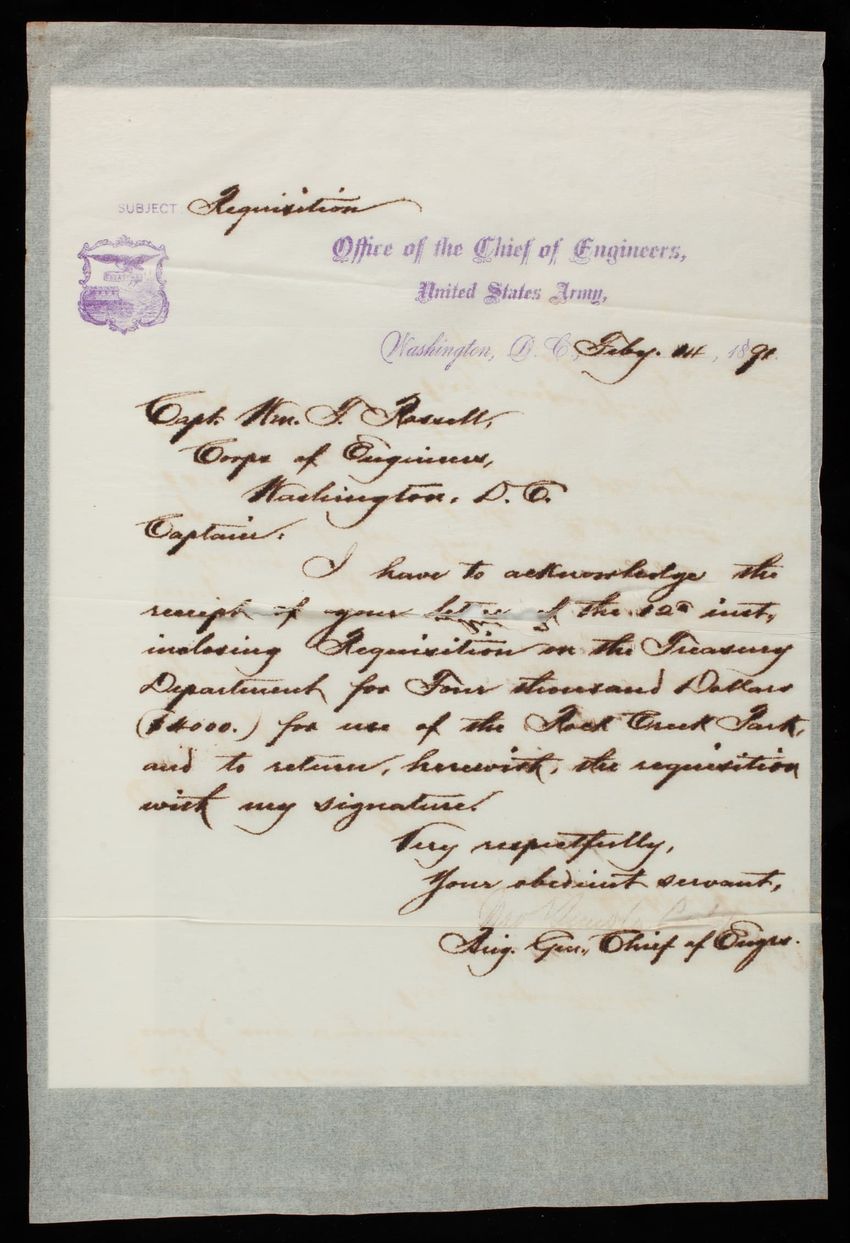 SUBJECT: Requisition
Office of the Chief of Engineers,
United States Army,
Washington, D. C. Feby. 14, 1891.
Capt. Wm. T. Rossell,
Corps of Engineers,
Washington, D. C.
Captain:
I have to acknowledge the
receipt of your letter of the 12th inst,
inclosing Requisition on the Treasury
Department for Four thousand Dollars
($4000.) for use of the Rock Creek Park,
and to return, herewith, the requisition
with my signature.
Very respectfully,
Your obedient servant,
Brig. Gen., Chief of Engrs.